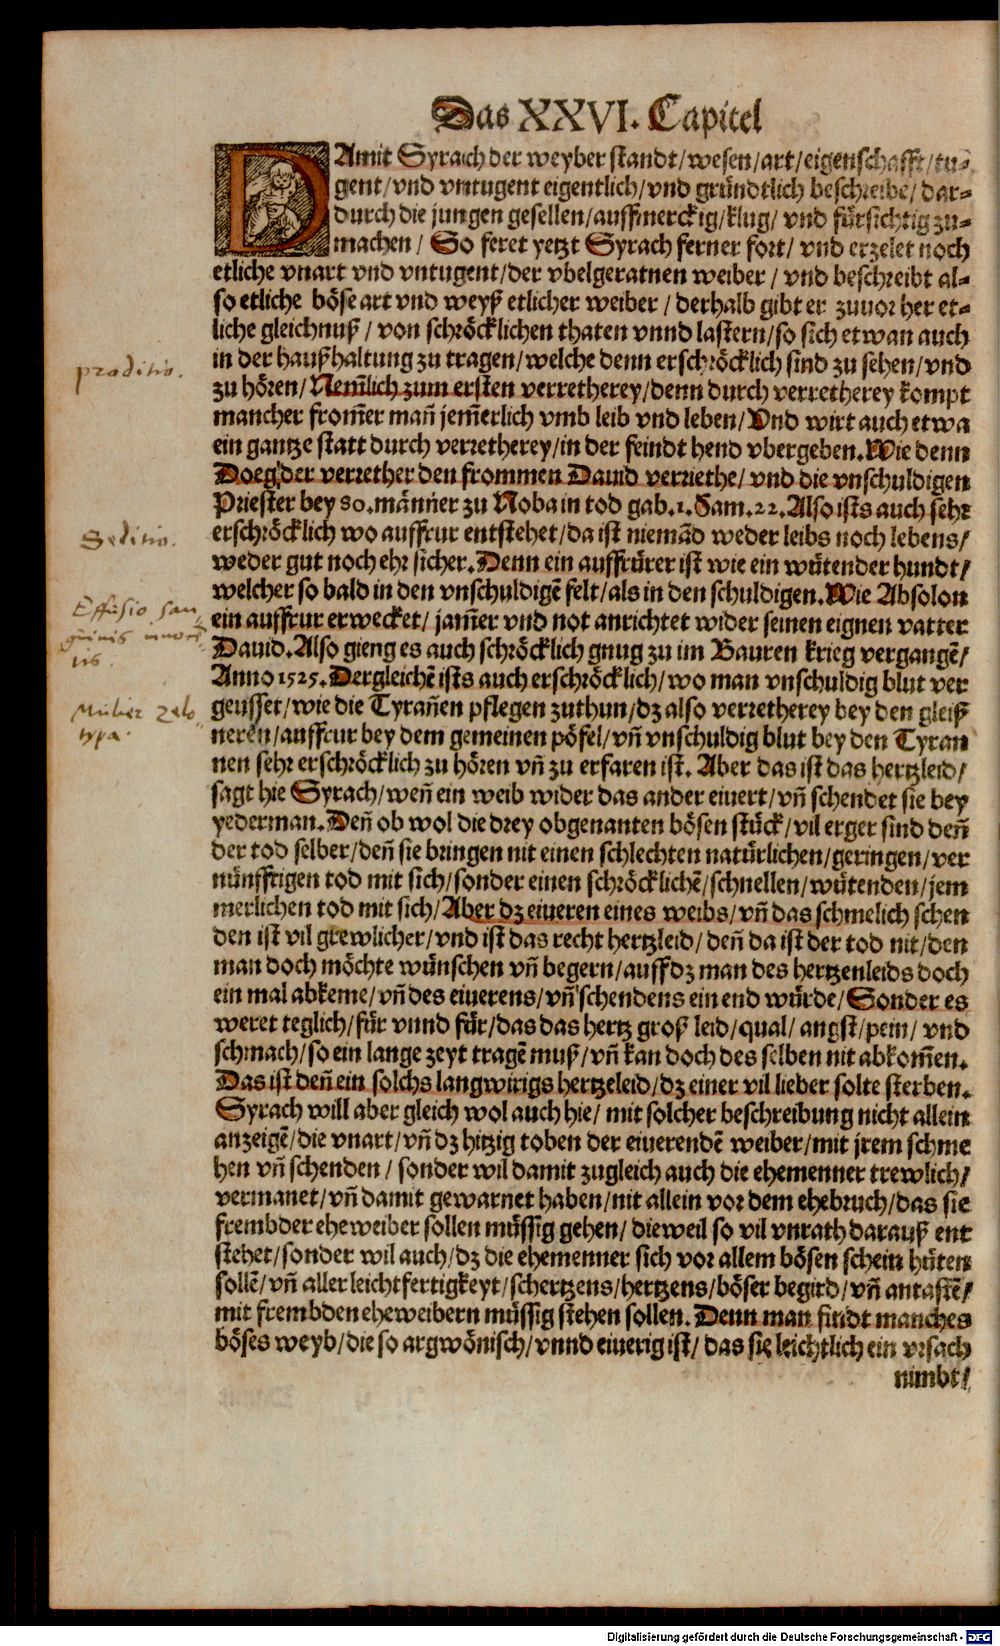 Das XXVI. Capitel
DAmit Syrach der weyber standt/wesen/art/eigenschafft/tu-
gent/vnd vntugent eigentlich/vnd gründtlich beschreibe/dar-
durch die jungen gesellen/auffmerckig/klug/vnd fürsichtig zu-
machen/ So feret yetzt Syrach ferner fort/ vnd erzelet noch
etliche vnart vnd vntugent/der vbelgeratnen weiber / vnd beschreibt al-
so etliche böse art vnd weyß etlicher weiber / derhalb gibt er zuuor her et-
liche gleichnuß / von schröcklichen thaten vnnd lastern/so sich etwan auch
praditio.
in der haußhaltung zu tragen/welche denn erschröcklich sind zu sehen/vnd
zu hören/Nemlich zum ersten verretherey/denn durch verretherey kompt
mancher from̃er mañ jem̃erlich vmb leib vnd leben/Vnd wirt auch etwa
ein gantze statt durch verretherey/in der feindt hend vbergeben.Wie denn
Doeg der verrether den frommen Dauid verriethe/vnd die vnschuldigen
Priester bey 80.männer zu Noba in tod gab.1.Sam.22.Also ists auch sehr
Seditio.
erschröcklich wo auffrur entstehet/da ist niemãd weder leibs noch lebens/
weder gut noch ehr sicher.Denn ein auffrürer ist wie ein wütender hundt/
welcher so bald in den vnschuldigẽ felt/als in den schuldigen.Wie Absolon
Effusio san
guinis innocẽ
tis.
ein auffrur erwecket/ jam̃er vnd not anrichtet wider seinen eignen vatter
Dauid.Also gieng es auch schröcklich gnug zu im Bauren krieg vergangẽ/
Anno 1525.Dergleichẽ ists auch erschröcklich/wo man vnschuldig blut ver
Mulier zelo
typa.
geusset/wie die Tyrañen pflegen zuthun/dz also verretherey bey den gleiß
neren/auffrur bey dem gemeinen pöfel/vñ vnschuldig blut bey den Tyran
nen sehr erschröcklich zu hören vñ zu erfaren ist. Aber das ist das hertzleid/
sagt hie Syrach/weñ ein weib wider das ander eiuert/vñ schendet sie bey
yederman.Deñ ob wol die drey obgenanten bösen stück/vil erger sind deñ
der tod selber/deñ sie bringen nit einen schlechten natürlichen/geringen/ver
nünfftigen tod mit sich/sonder einen schröcklichẽ/schnellen/wütenden/jem
merlichen tod mit sich/Aber dz eiueren eines weibs/vñ das schmelich schen
den ist vil grewlicher/vnd ist das recht hertzleid/ deñ da ist der tod nit/den
man doch möchte wünschen vñ begern/auff dz man des hertzenleids doch
ein mal abkeme/vñ des eiuerens/vñ schendens ein end würde/Sonder es
weret teglich/für vnnd für/das das hertz groß leid/qual/ angst/pein/ vnd
schmach/so ein lange zeyt tragẽ muß/vñ kan doch des selben nit abkom̃en.
Das ist deñ ein solchs langwirigs hertzeleid/dz einer vil lieber solte sterben.
Syrach will aber gleich wol auch hie/ mit solcher beschreibung nicht allein
anzeigẽ/die vnart/vñ dz hitzig toben der eiuerendẽ weiber/mit jrem schme
hen vñ schenden/ sonder wil damit zugleich auch die ehemenner trewlich/
vermanet/vñ damit gewarnet haben/nit allein vor dem ehebruch/das sie
frembder eheweiber sollen müssig gehen/ dieweil so vil vnrath darauß ent
stehet/sonder wil auch/dz die ehemenner sich vor allem bösen schein hüten
sollẽ/vñ aller leichtfertigkeyt/schertzens/hertzens/böser begird/vñ antastẽ/
mit frembden eheweibern müssig stehen sollen. Denn man findt manches
böses weyb/die so argwönisch/vnnd eiuerig ist/ das sie leichtlich ein vrsach
nimbt/
Digitalisierung gefördert durch die Deutsche Forschungsgemeinschaft - DFG